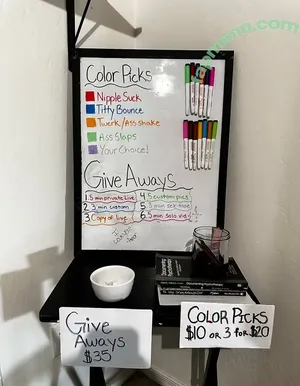 Color Picks
Nipple Suck
Titty Bounce
Twerk/Ass shake
Ass Slaps
Your Choice!
Give Aways
1 5 min private Live
2 3 min custom
3 Copy of live
4 5 custom pics
5 5 min sex tape
6 5 min solo vid
Give
Aways
$35
COLOR PICKS
$10 OR 3 FOR $20